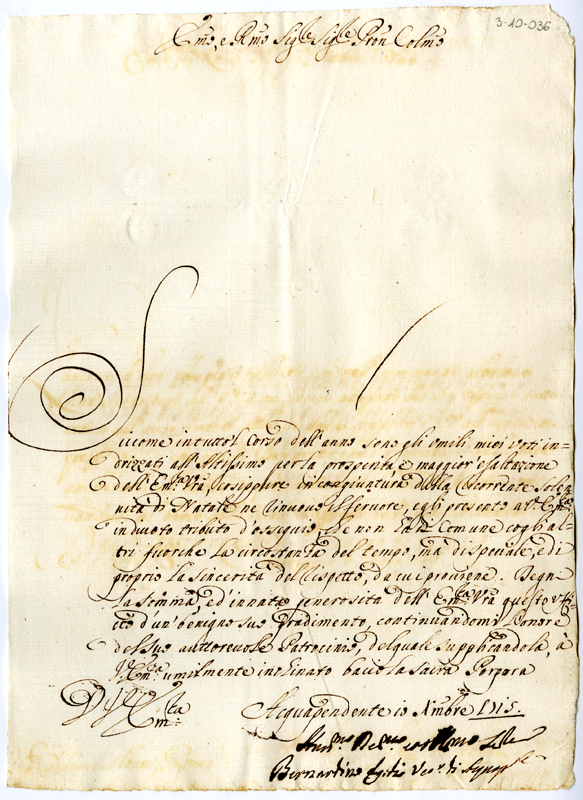 3-10-036
Emo, e Rmo Sigre Sigre Pron Colmo
Siccome in tutto'l Corso dell'anno sono gli umili miei voti in-
drizzati all'Altissimo per la prosperità, e maggior'esaltazione
dell'Emza Vra, così pure in congiuntura della Corrente Sole-
nità di Natale ne rinuovo il fervore, e gli presento a V. Emza
in divoto tributo d'ossequio, che non hà di Comune cogli al-
tri fuorche la circostanza del tempo, mà di speciale, e di
proprio la sincerità del rispetto, da cui proviene. Degni
la somma, ed innata generosità dell'Emza Vra questo
d'un benigno suo gradimento, continuandomi l'onore
del suo auttorevole Patrocinio, del quale supplicandola, à
V. Emza umilmente inchinato bacio la Sacra Porpora
Di V. Emza
Acquapendente 10 Xmbre 1715.
Bernardino Vesco di Acquapte